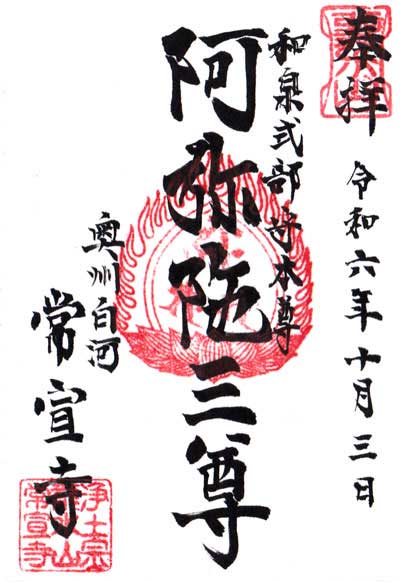 奉拝
令和六年十月三日
和泉式部守本尊
阿弥陀三尊
奥州白河
常宣寺
浄土宗
山
常宣寺